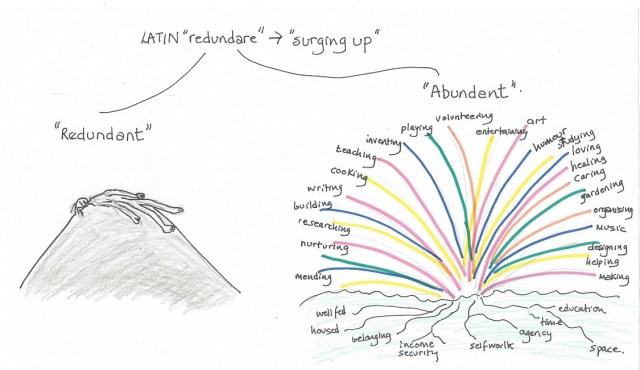 LATIN "redundare" → "surging up"
"Redundant"
"Abundent".
mending
nurturing
researching
building
writing
cooking
teaching
inventing
playing
volunteering
entertaining
art
humour
studying
loving
healing
caring
gardening
organising
MUSIC
designing
helping
making
well fed
housed
belonging
income
security
selfwork
agency
time
education
space.